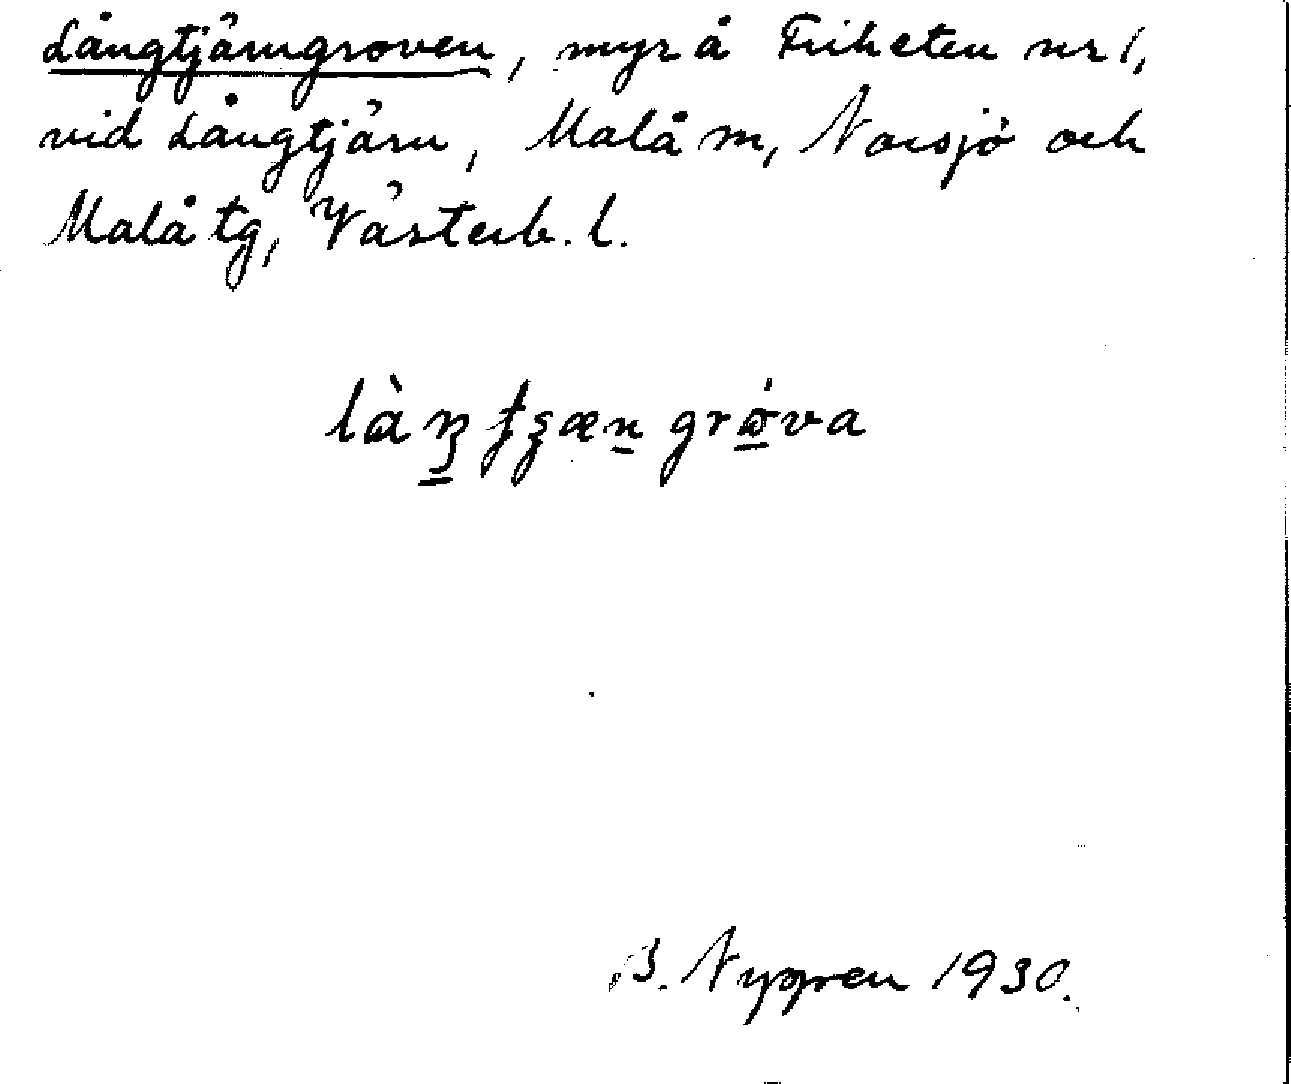 Långtjärngroven, myr å Friheten nr 1,
vid Långtjärn, Malå m, Norsjö och
Malå tg, Västerb. l.
B. Nygren 1930.